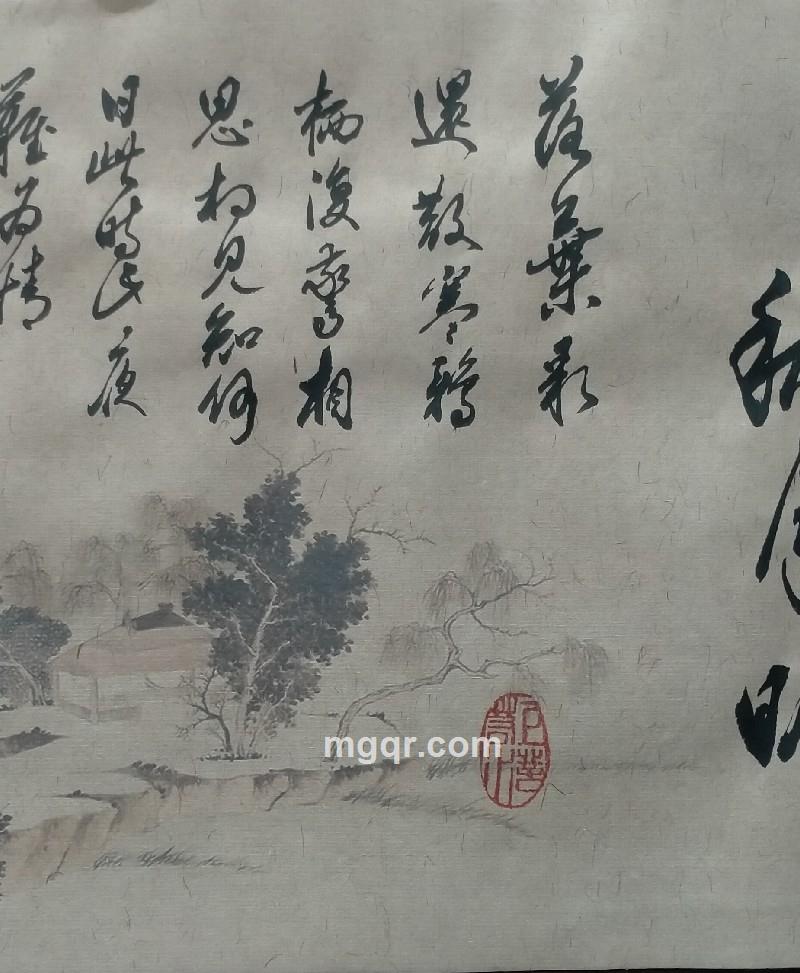 秋月明
落葉聚
還散寒鴉
栖復驚相
思相見知何
日此時此夜
難為情
mgqr.com